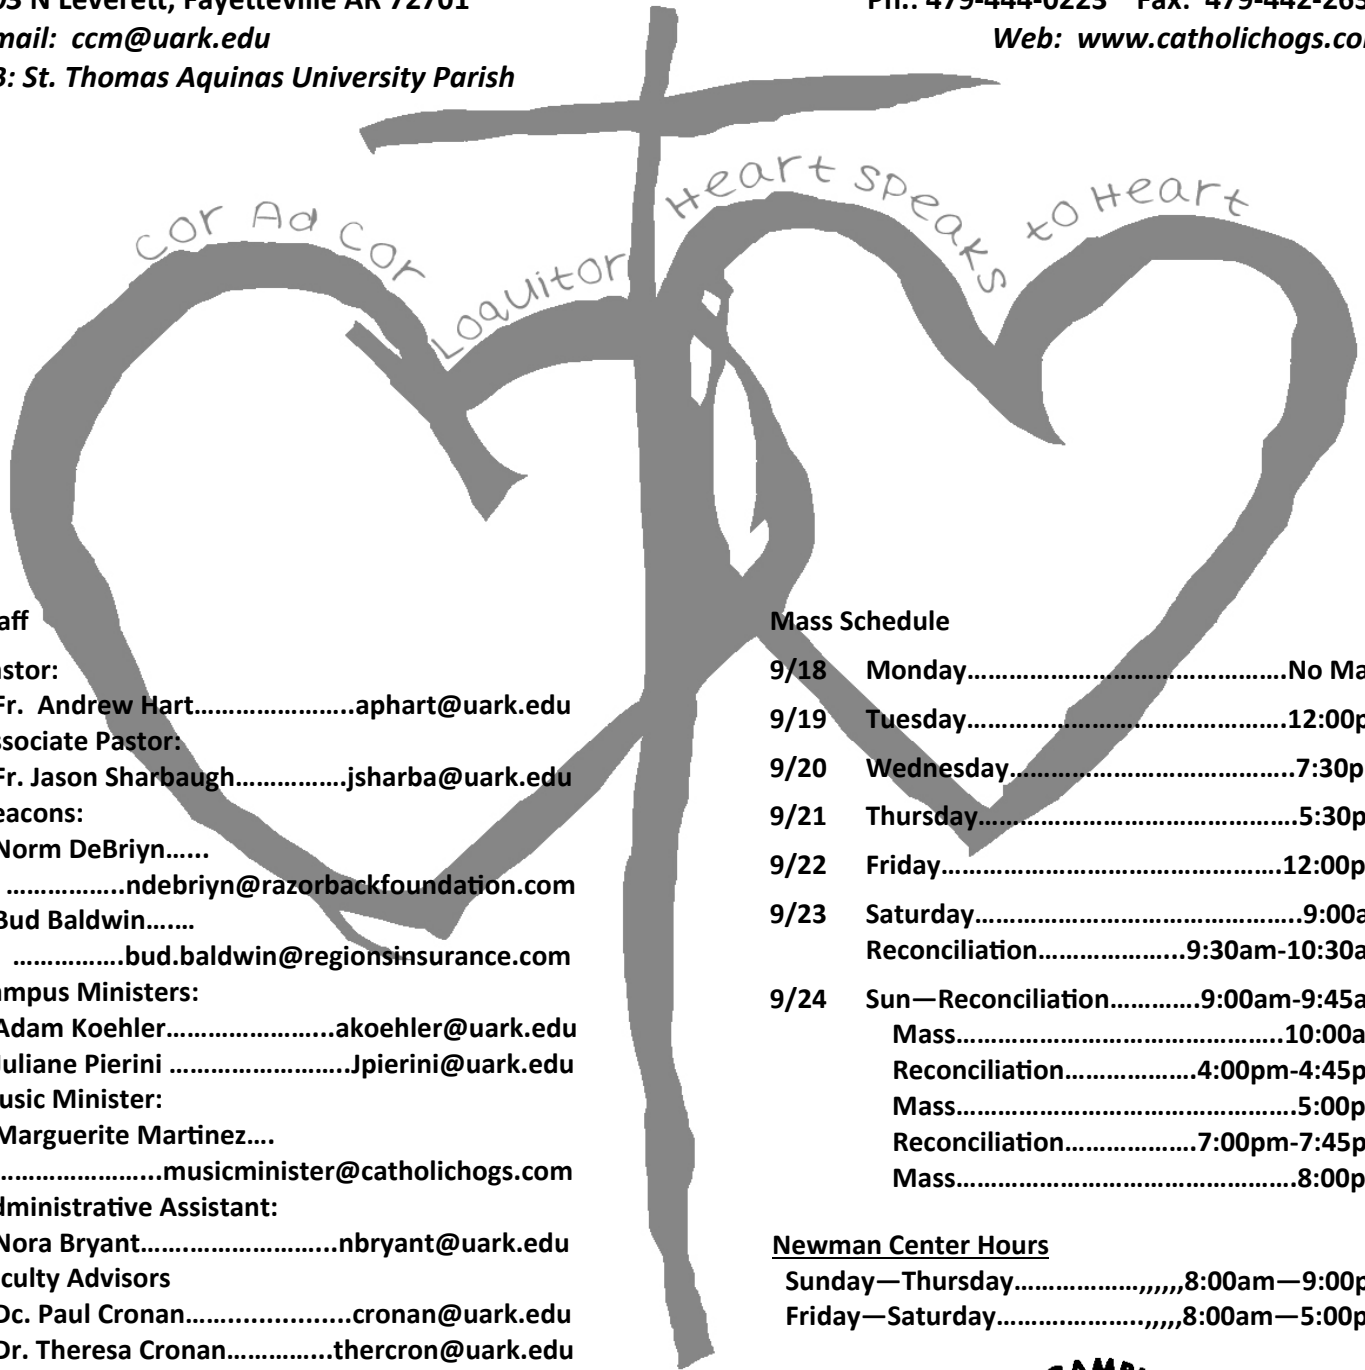 03 N Leverett, Fayetteville AR 72701
mail: ccm@uark.edu
B: St. Thomas Aquinas University Parish
Ph.: 479-444-0223 Fax: 479-442-265
Web: www.catholichogs.co
Cor Ad Cor Loquitor Heart Speaks to Heart
aff
astor:
Fr. Andrew Hart.......................aphart@uark.edu
ssociate Pastor:
Fr. Jason Sharbaugh................jsharba@uark.edu
eacons:
Norm DeBriyn......
.................ndebriyn@razorbackfoundation.com
Bud Baldwin.......
................bud.baldwin@regionsinsurance.com
ampus Ministers:
Adam Koehler........................akoehler@uark.edu
Juliane Pierini ..........................Jpierini@uark.edu
usic Minister:
Marguerite Martinez....
........................musicminister@catholichogs.com
dministrative Assistant:
Nora Bryant.............................nbryant@uark.edu
culty Advisors
Dc. Paul Cronan........................cronan@uark.edu
Dr. Theresa Cronan...............thercron@uark.edu
Mass Schedule
9/18 Monday..............................................No Ma
9/19 Tuesday..............................................12:00p
9/20 Wednesday.........................................7:30p
9/21 Thursday..............................................5:30p
9/22 Friday.................................................12:00p
9/23 Saturday...............................................9:00a
Reconciliation.....................9:30am-10:30a
9/24 Sun—Reconciliation.............9:00am-9:45a
Mass...............................................10:00a
Reconciliation...................4:00pm-4:45p
Mass.................................................5:00p
Reconciliation...................7:00pm-7:45p
Mass.................................................8:00p
Newman Center Hours
Sunday—Thursday..................,,,,,,8:00am—9:00p
Friday—Saturday.....................,,,,,8:00am—5:00p